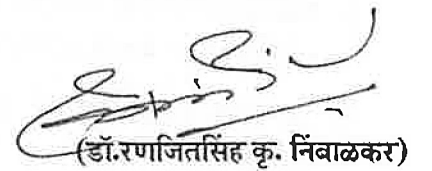 (डॉ.रणजितसिंह कृ. निंबाळकर)